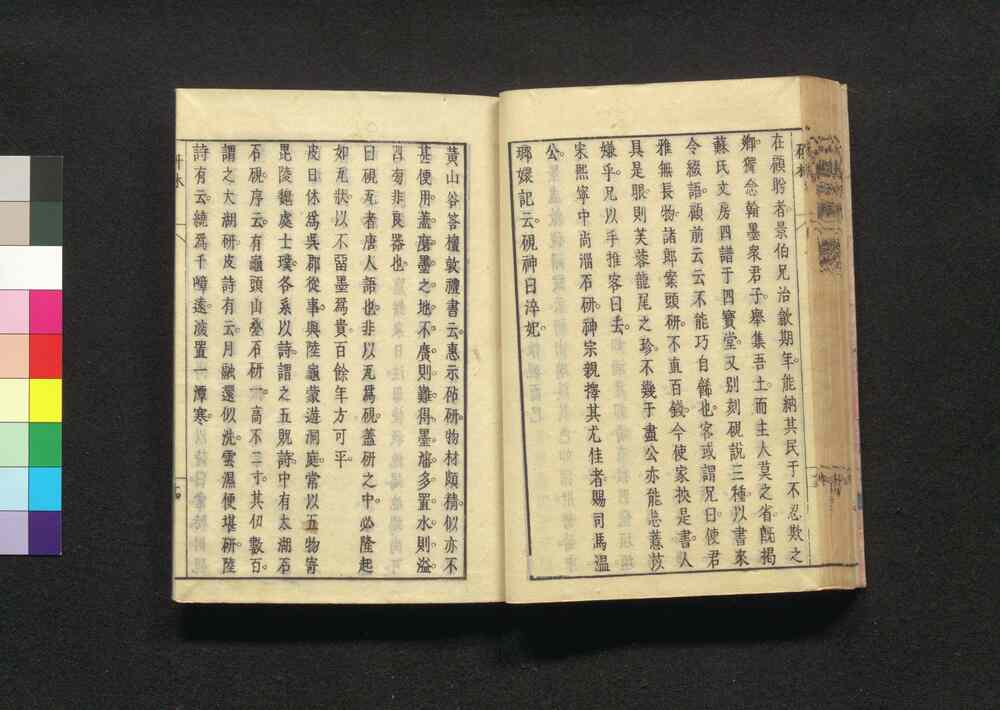 在顧盼者景伯兄治歙期年能納其民于不忍欺之
鄉獨念翰墨衆君子。舉集吾土而主人莫之省旣揭
蘇氏文房四譜于四寶堂。又別刻硯說三種以書來
令綴語顧前云云不能巧自餙也。客或謂兄曰使君
雅無長物。諸郎案頭研不直百錢。今使家挾是書人
具是眼則芙蓉龍尾之珍不幾于盡公亦能忘薏苡
嫌乎兄以手推客曰去。
宋熙寧中尚淄石研。神宗親擇其尤佳者。賜司馬溫
公。
瑯嬛記云硯神曰淬妃。
黃山谷答檀敦禮書云惠示研。物材頗精。似亦不
甚便用。蓋磨墨之地不廣。則難得墨瀋。多置水則溢
非良器也
曰硯瓦者唐人語也。非以瓦爲硯。蓋研之中。必隆起
如瓦狀以不留墨爲貴。百餘年方可平
皮日休爲吳郡從事。與陸龜蒙遊洞庭。常以五物寄
毘陵魏處士璞。各系以詩。謂之五貺。詩中有太湖石
石硯。序云。有龜頭山疊石研一。高不二寸。其仞數百
謂之太湖研。皮詩有云。月融還似洗。雲濕便堪研。陸
詩有云。繞爲千嶂遠。㴱置一潭寒。